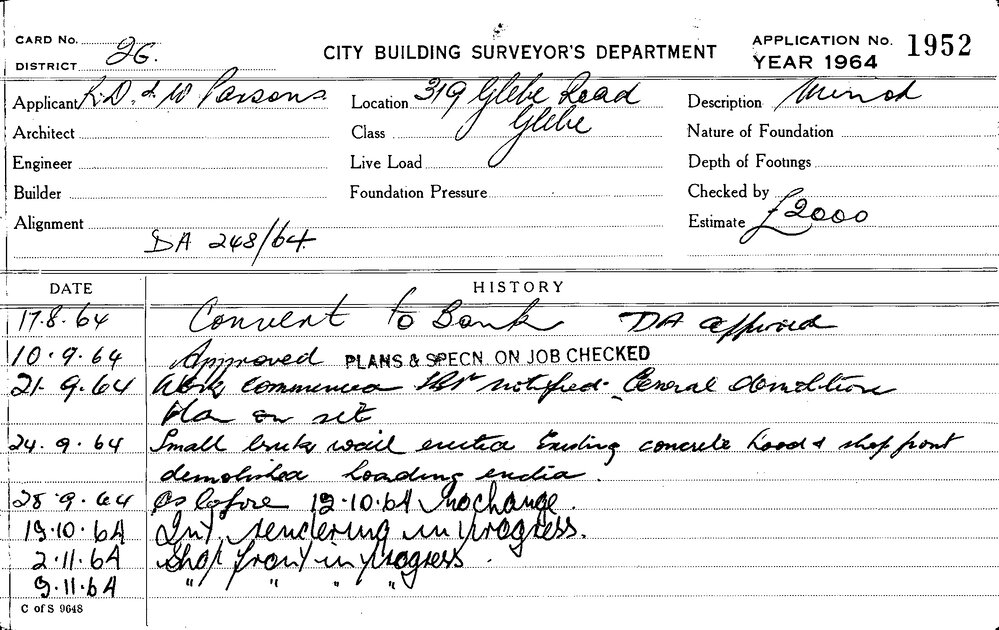 CARD No.
DISTRICT 26.
CITY BUILDING SURVEYOR'S DEPARTMENT
APPLICATION No. 1952
YEAR 1964
Applicant K.D. & W Parsons.
Location 319 Glebe Road
Glebe
Description Minor
Architect
Class
Nature of Foundation
Engineer
Live Load
Depth of Footings
Builder
Foundation Pressure
Checked by
Alignment
Estimate £2000
DA 248/64
DATE HISTORY
17.8.64 Convert to Bank DA approved
10.9.64 Approved PLANS & SPECN. ON JOB CHECKED
21.9.64 Work commenced notified. General demolition
plan on set
24.9.64 Small brick wall erected Existing concrete hood & shop front
demolished hoarding erected.
28.9.64 As before 12.10.64 No change.
19.10.64 Int. rendering in progress.
2.11.64 Shop front in progress.
9.11.64 " " " "
C of S 9648